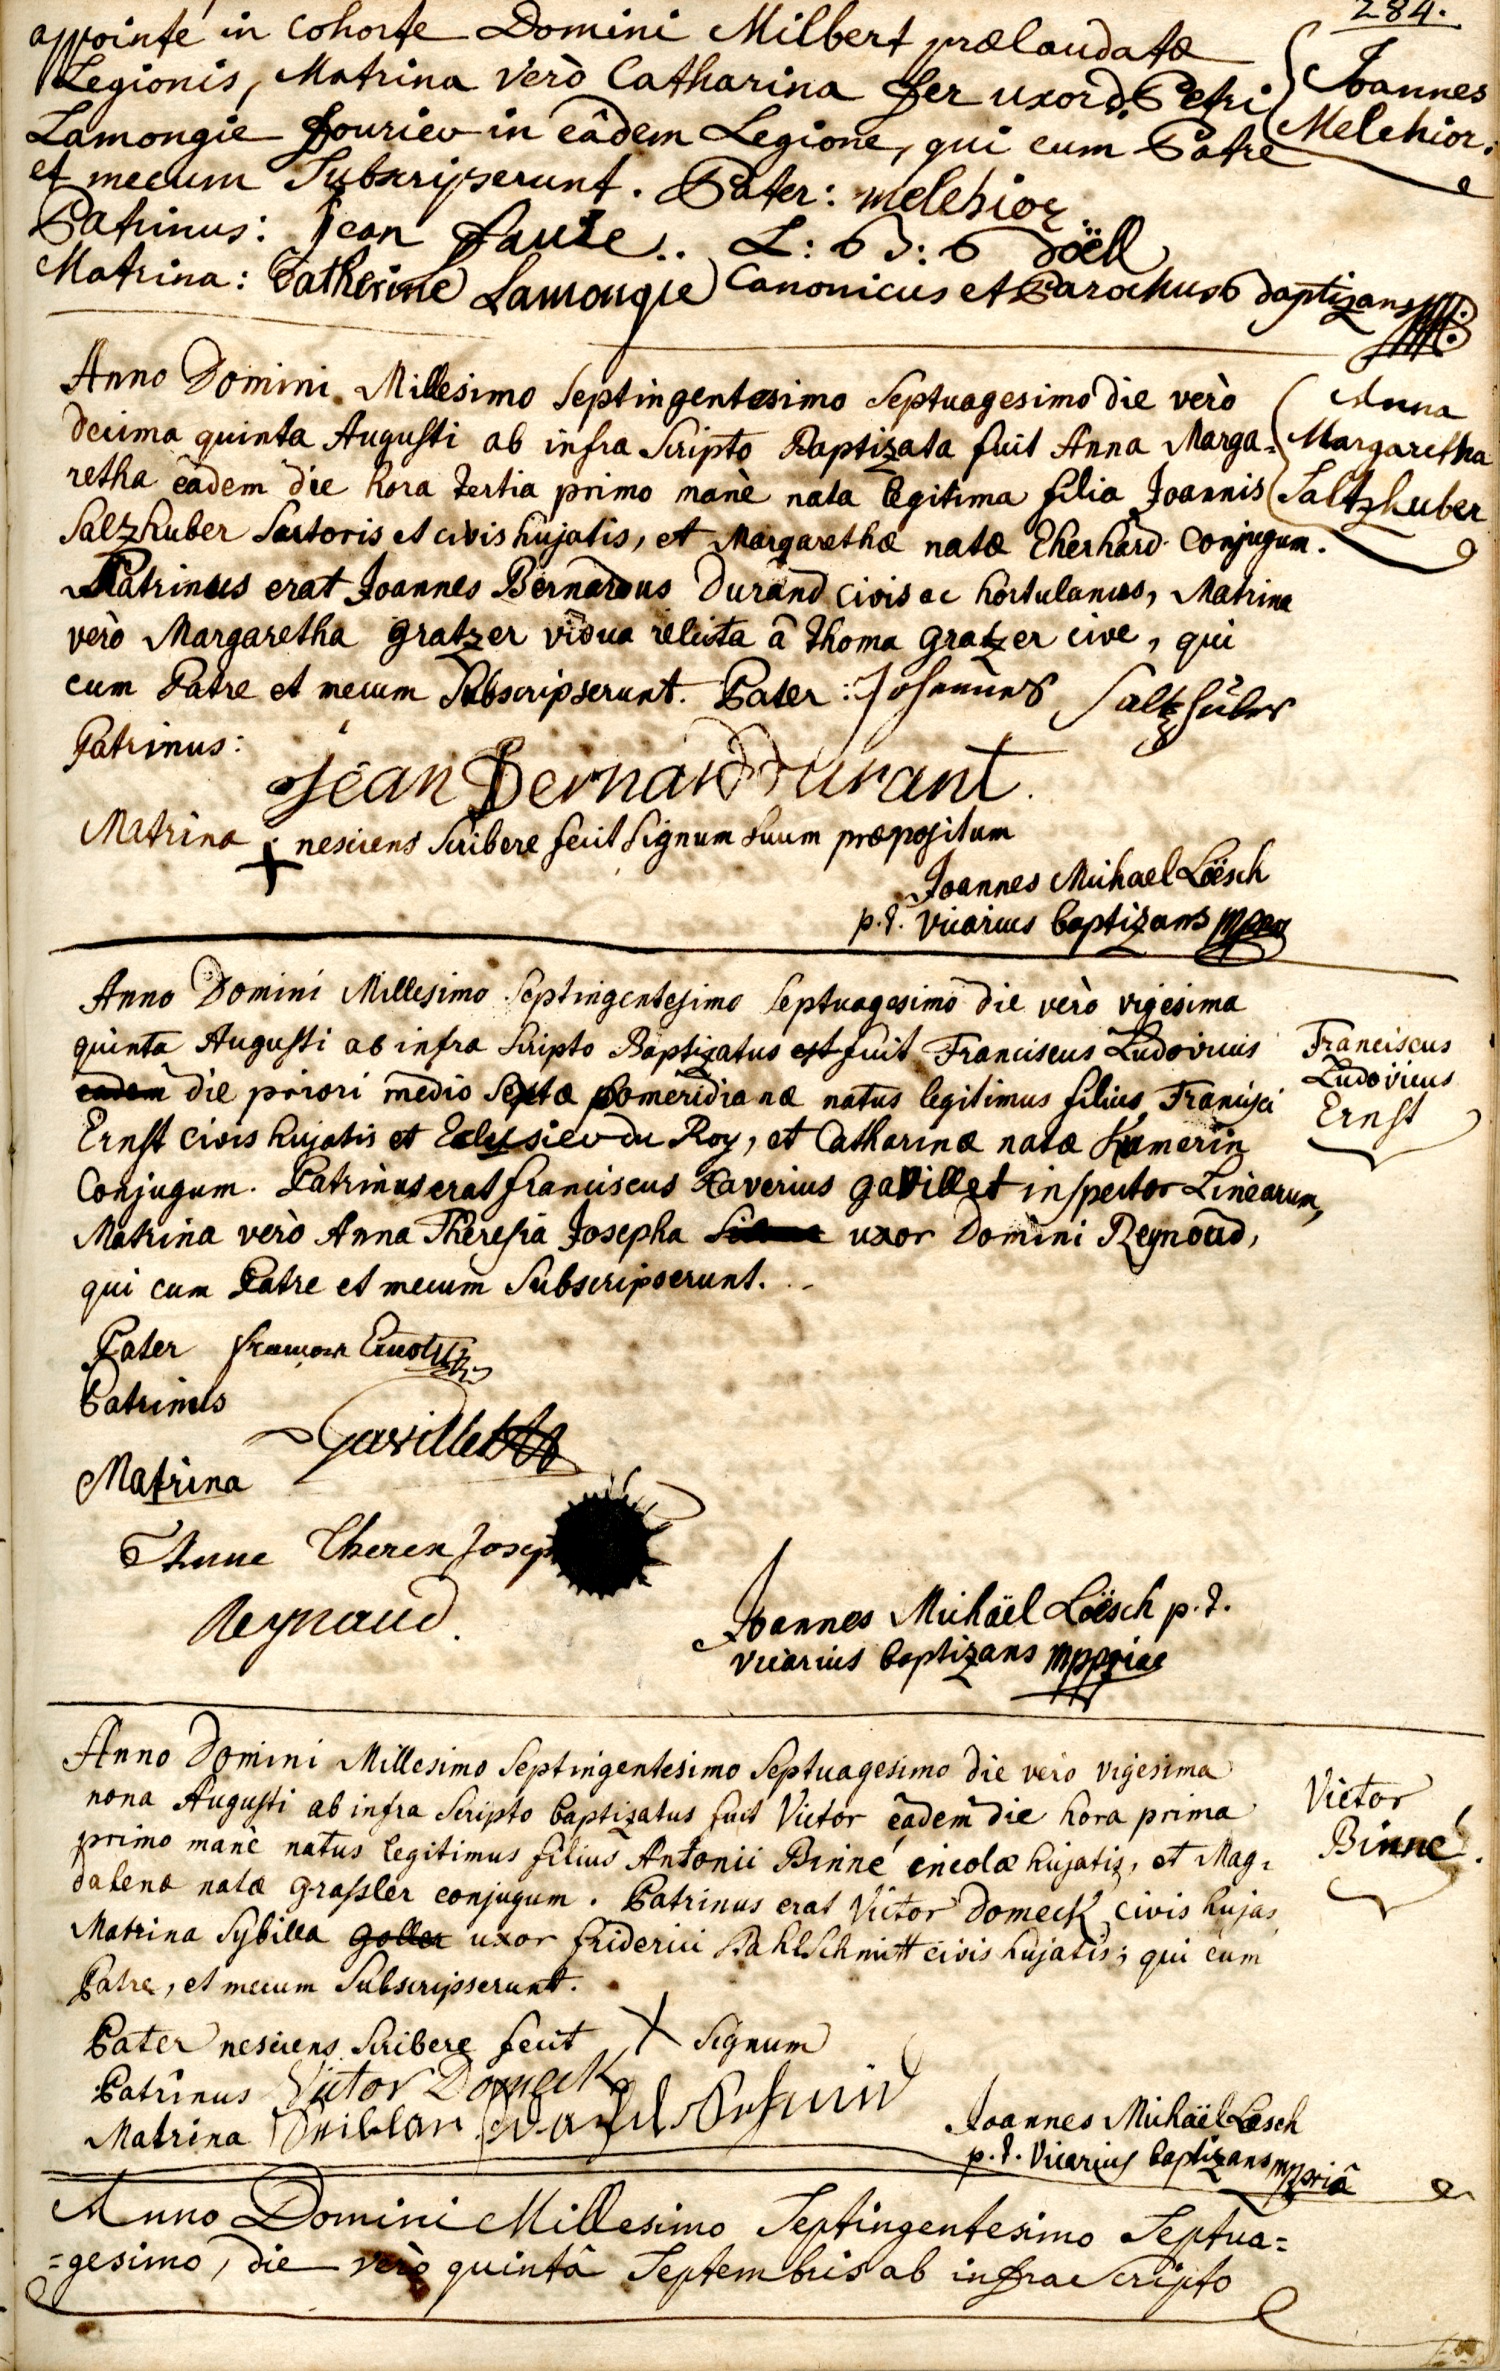 284.
appointé in cohorte Domini Milbert prælaudatæ
Legionis, Matrina verò Catharina Fer uxor D. Petri
Joannes
Melchior.
Lamongie fourier in eâdem Legione, qui cum Patre
et mecum Subscripserunt. Pater: melchior
Patrinus: Jean Faure..
Matrina: Catherine Lamongie Canonicus et Parochus baptizans
Anno Domini Millesimo Septingentesimo Septuagesimo die verò
decima quinta Augusti ab infra scripto Baptizata fuit Anna Marga=
retha eâdem die hora tertia primo manè nata legitima filia Joannis
Salzhuber Sartoris et civis hujatis, et Margarethæ natæ Eherhard Conjugum.
Patrinus erat Joannes Bernardus Durand civis ac hortulanus, Matrina
verò Margaretha Gratzer vidua relicta â Thoma Gratzer cive, qui
cum Patre et mecum Subscripserunt. Pater: Johannes Saltzhuber
Anna
Margaretha
Saltzhuber
Patrinus:
Jean Bernard Durant.
Matrina + nesciens scribere fecit signum suum præpositum
Joannes Michael Loësch
p.t. Vicarius baptizans mppria
Anno Domini Millesimo Septingentesimo Septuagesimo die verò vigesima
quinta Augusti ab infra scripto Baptizatus est fuit Franciscus Ludovicus
eadem die priori medio Sextæ pomeridianæ natus legitimus filius Francisci
Ernst civis hujatis et du Roy, et Catharinæ natæ Kamerin
Conjugum. Patrinus erat franciscus Xaverius gavillet inspector Linearum,
Matrina verò Anna Theresia Josepha uxor Domini Reynaud,
qui cum Patre et mecum Subscripserunt.
Franciscus
Ludovicus
Ernst
Pater
Patrinus
Gavillet
Matrina
Anne Theres Josep
Reynaud.
Joannes Michäel Loësch p.t.
Vicarius baptizans mppriae
Anno Domini Millesimo Septingentesimo Septuagesimo die vero vigesima
nona Augusti ab infra scripto baptizatus fuit Victor eâdem die hora prima
primo manè natus legitimus filius Antonii Binné incolæ hujatis, et Mag=
dalenæ natæ Grassler conjugum. Patrinus erat Victor Domeck civis hujas
Matrina Sybilla Goller uxor friderici Bahlschmitt civis hujatis; qui cum
Patre, et mecum Subscripserunt.
Victor
Binné.
Pater nesciens scribere fecit X signum
Patrinus Victor Domeck
Matrina
Joannes Michäel Loesch
p.t. Vicarius baptizans mppriâ
Anno Domini Millesimo Septingentesimo Septua=
=gesimo, die verò quintâ Septembris ab infra scripto